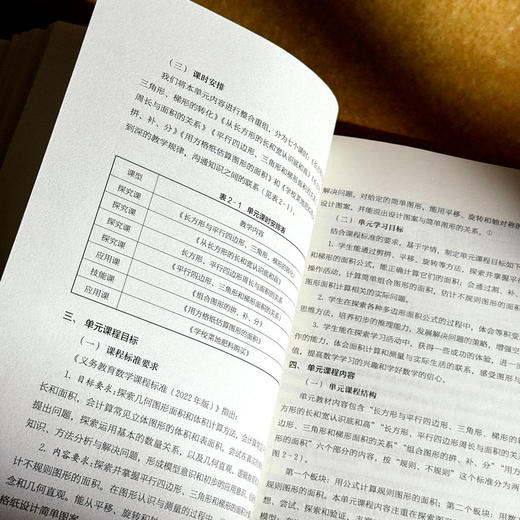 （三）课时安排
我们将本单元内容进行整合重组，分为七个课时：《长方
三角形、梯形的转化》《从长方形的长和宽认识底和高》《长方
周长与面积的关系》《平行四边形、三角形和梯形面积的关系》
拼、补、分》《用方格纸估算图形的面积》和《学校菜地肥料
到深的教学规律，沟通知识之间的联系（见表2-1）。
表2-1 单元课时安排表
课型
教学内容
探究课
《长方形与平行四边形、三角形、梯形的转化》
探究课
《从长方形的长和宽认识底和高》
探究课
长方形、平行四边形周长与面积的关系
探究课
《平行四边形、三角形和梯形面积的关系》
应用课
《组合图形的拼、补、分》
技能课
《用方格纸估算图形的面积》
应用课
《学校菜地肥料购买》
三、单元课程目标
（一）课程标准要求
《义务教育数学课程标准（2022年版）》指出：
1. 目标要求：探索几何图形面积和体积计算方法，会计算
长和面积，会计算常见立体图形的体积和表面积，会尝试在
提出问题，探索运用基本的数量关系，以及几何直观、逻辑推
知识、方法分析与解决问题，形成模型意识和初步的应用意识
2. 内容要求：探索并掌握平行四边形、三角形和梯形的面积
计不规则图形的面积。在图形认识与测量的过程中
念和几何直观。能从平移、旋转和
格纸设计简单图案
解决问题，对给定的简单图形，能用平移、旋转和轴对称的
设计图案，并能提出设计图案与简单图形的关系。①
（二）单元学习目标
结合课程标准的要求，基于学情，制定单元课程目标如下
1. 学生能通过辨拼、平移、旋转等方法，探索并掌握平行
和面积公式，能正确计算它们的面积；会通过测、补、
操作活动，计算简单组合图形的面积，估计不规则图形的面积
图形面积计算相关的实际问题。
2. 学生在探索多种多边形面积公式的过程中，体会等积变
思维方法，培养初步的推理能力，发展解决问题的策略，增强空
3. 学生能在探索学习活动中，获得一些成功的体验，进一
作的能力，体会面积计算和测量与实际生活的联系，感受图形与
值，提高数学学习的兴趣和学好数学的信心。
四、单元课程内容
（一）单元课程结构
单元教材内容包含“长方形与平行四边形、三角形、梯形的
方形的长和宽认识底和高”“长方形、平行四边形周长与面积的
形的面积的关系”“组合图形的拼、补、分”“用
面积”六个部分的内容，按“规则、不规则”这个标准分为两
图2-2）。
第一个板块：用公式计算规则图形的面积；第二个板块：用数
规则图形的面积。本单元课程内容注重在探索
想、尝试、探索和验证、主
模型：在